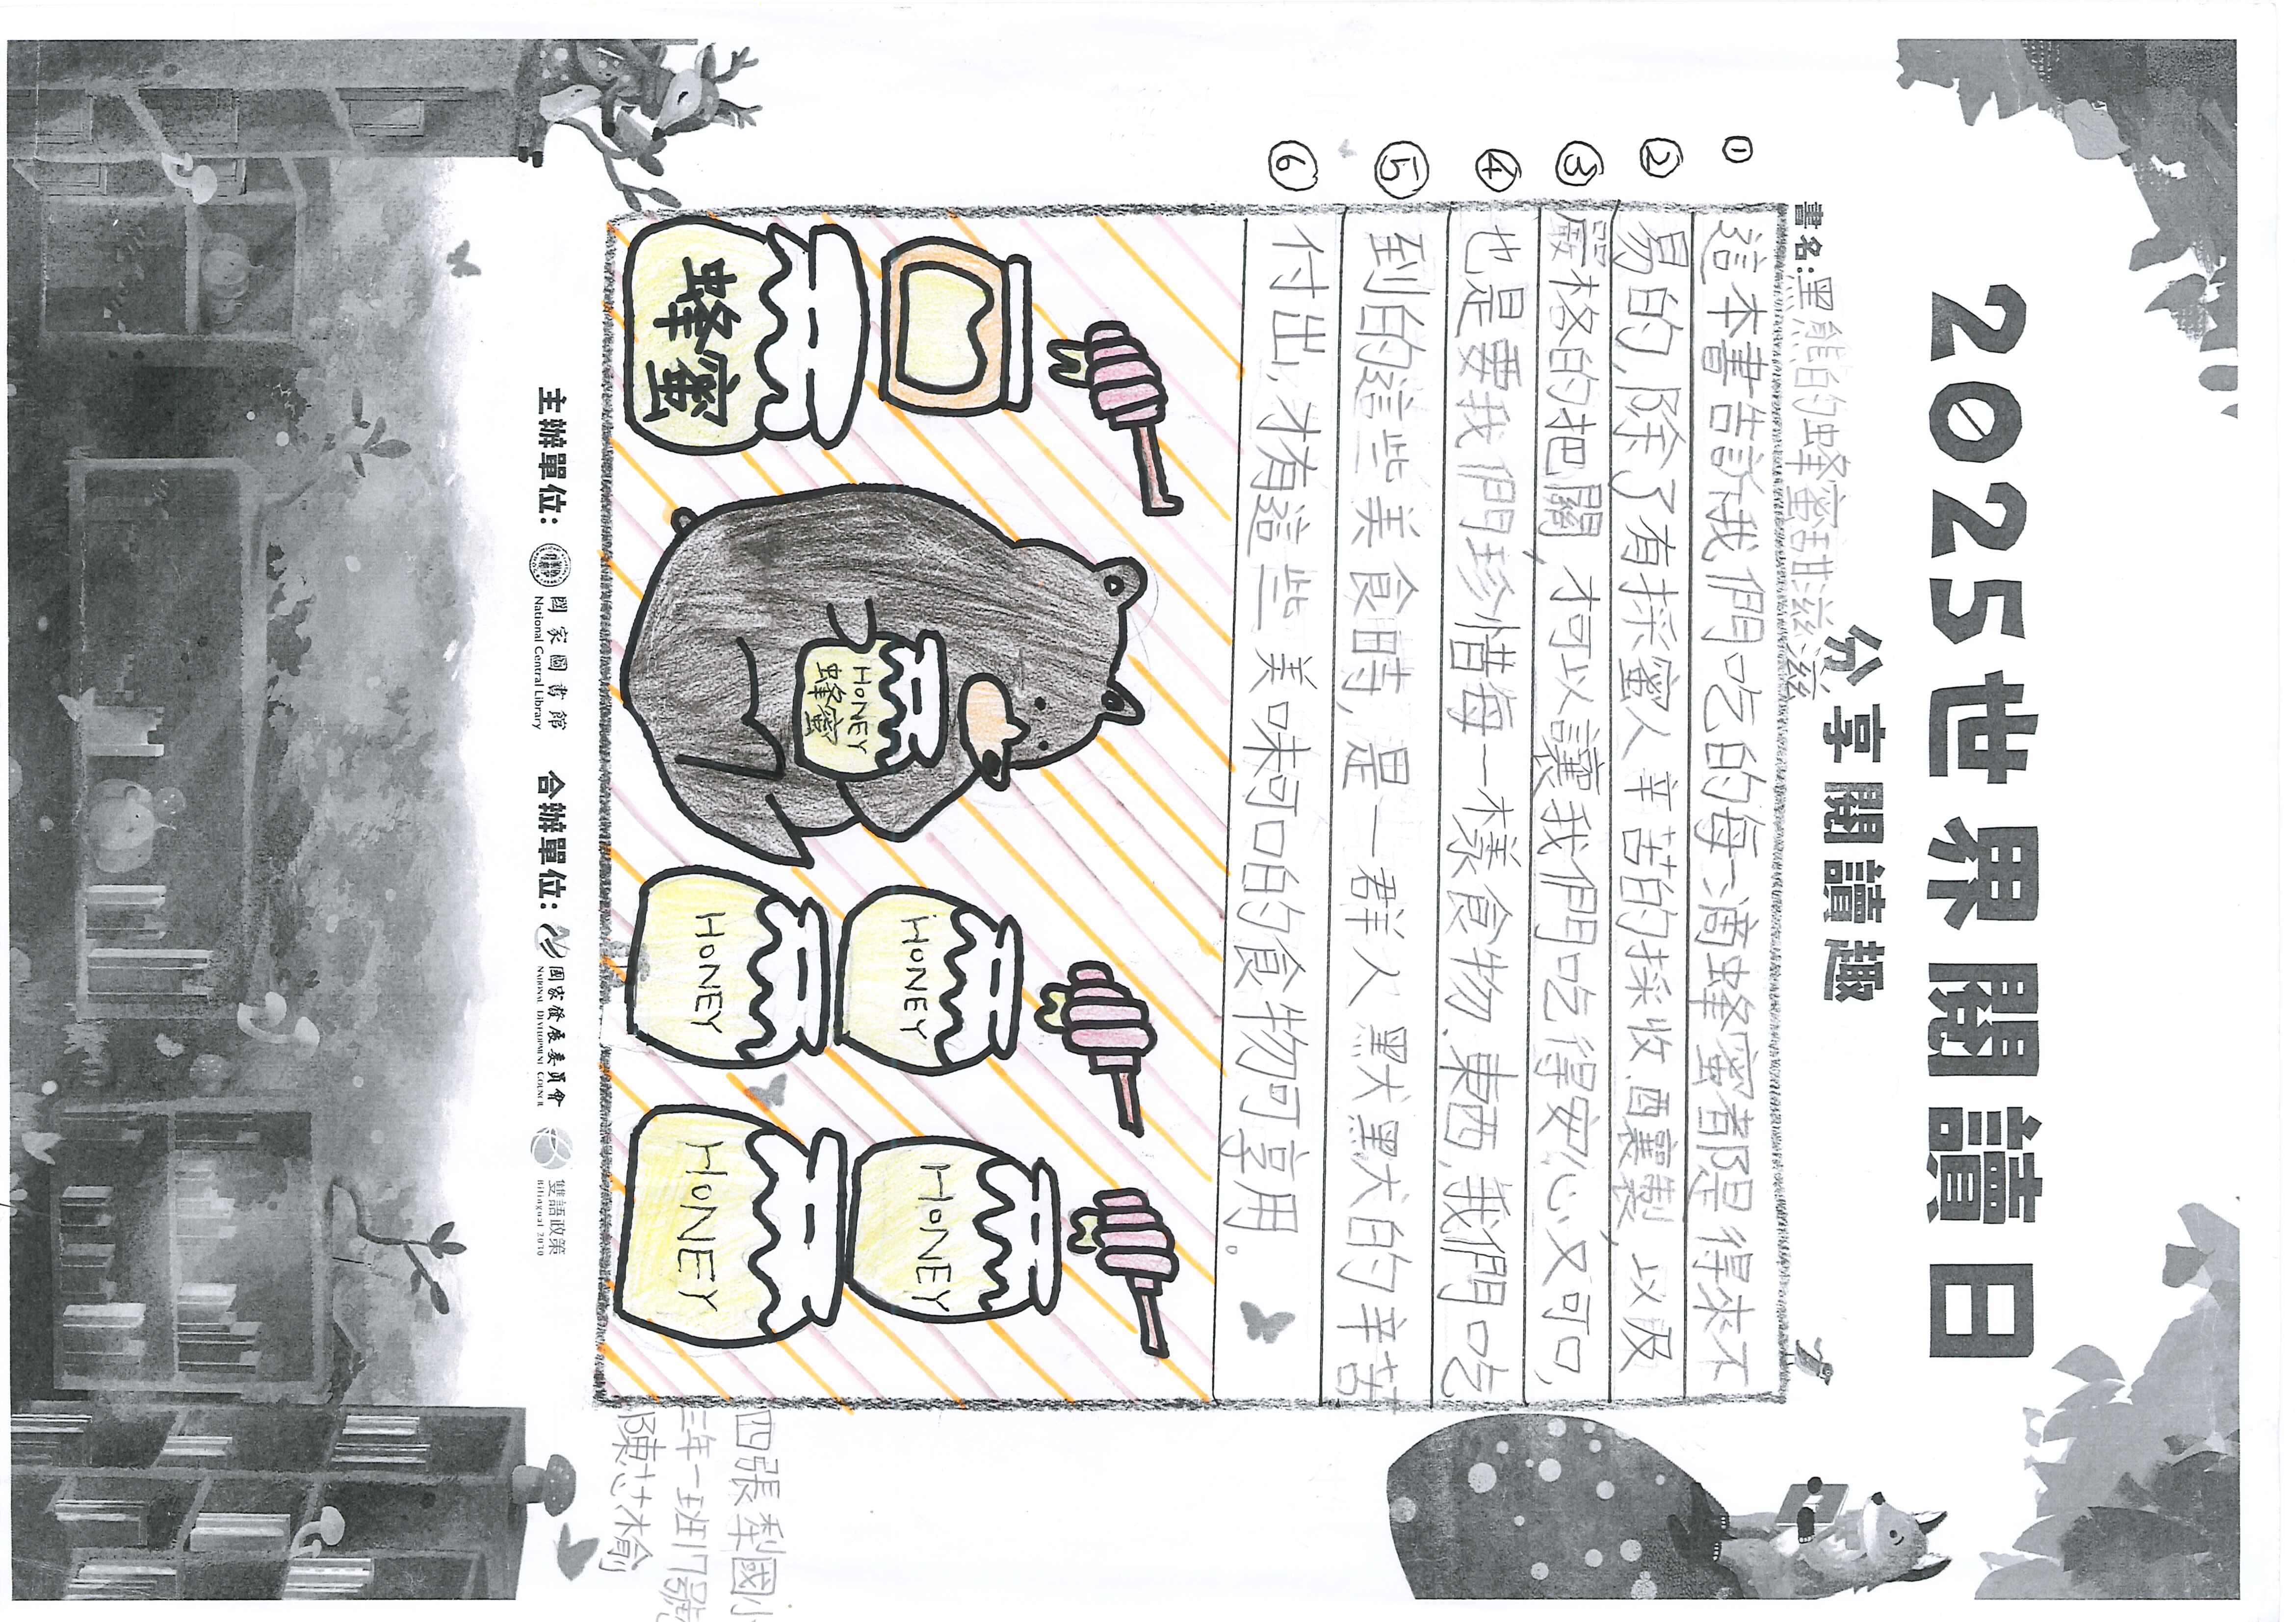 2025世界閱讀日
分享閱讀趣
書名:黑熊的蜂蜜甜滋滋
① 這本書告訴我們吃的每一滴蜂蜜都是得來不
② 易的,除了有採蜜人辛苦的採收、釀製,以及
③ 嚴格的把關,才可以讓我們吃得安心又可口,
④ 也是要我們珍惜每一樣食物、東西,我們吃
⑤ 到的這些美食時,是一群人默默的辛苦
⑥ 付出,才有這些美味可口的食物可享用。
蜂蜜
HONEY
蜂蜜
HONEY
HONEY
HONEY
HONEY
四張犁國小
三年一班17號
主辦單位:
國家圖書館
National Central Library
合辦單位:
國家發展委員會
NATIONAL DEVELOPMENT COUNCIL
雙語政策
Bilingual 2030